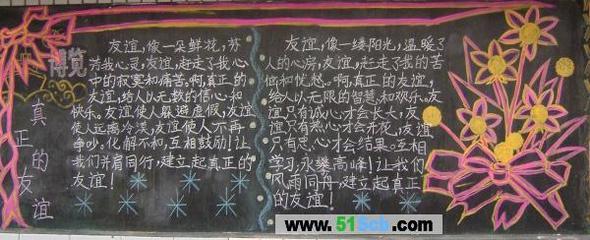 博览
真正的友谊
友谊,像一朵鲜花,芬
芳我心灵,友谊,赶走了我心
中的寂寞和痛苦。啊,真正的
友谊,给人以无数的信心和
快乐。友谊使人躲避虚假,友谊
使人远离冷漠,友谊使人不再
争吵,化解不和,互相鼓励!让
我们并肩同行,建立起真正的
友谊!
友谊,像一缕阳光,温暖了
人的心房,友谊,赶走了我的苦
恼和忧愁。啊,真正的友谊,
给人以无限的智慧,和欢乐。友
谊只有诚心才会长大,友
谊只有热心才会开花,友谊
只有忠心才会结果。互相
学习,永攀高峰!让我们
风雨同舟,建立起真正
的友谊!
www.515cb.com